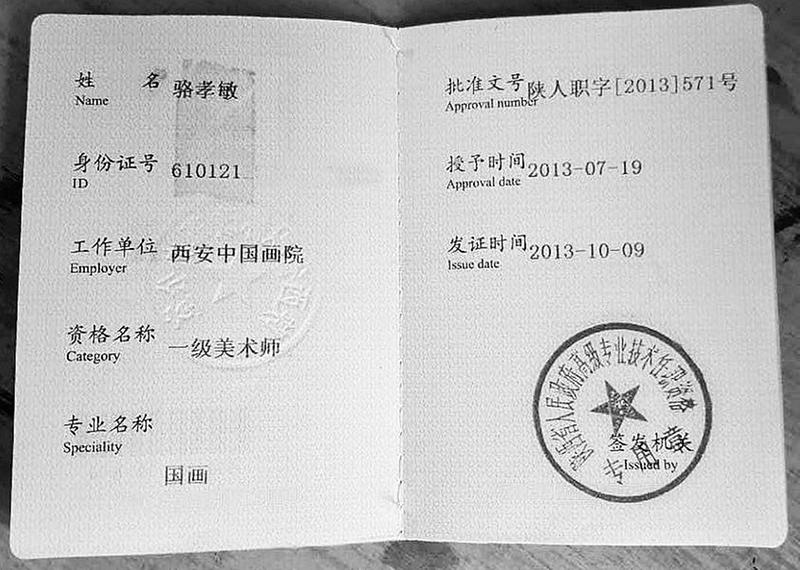 姓 名 骆孝敏
Name
身份证号 610121
ID
工作单位 西安中国画院
Employer
资格名称 一级美术师
Category
专业名称
Speciality
国画
批准文号 陕人职字[2013]571号
Approval number
授予时间 2013-07-19
Approval date
发证时间 2013-10-09
Issue date
陕西省人民政府高级专业技术任职资格
签发机关
Issued by
专用章